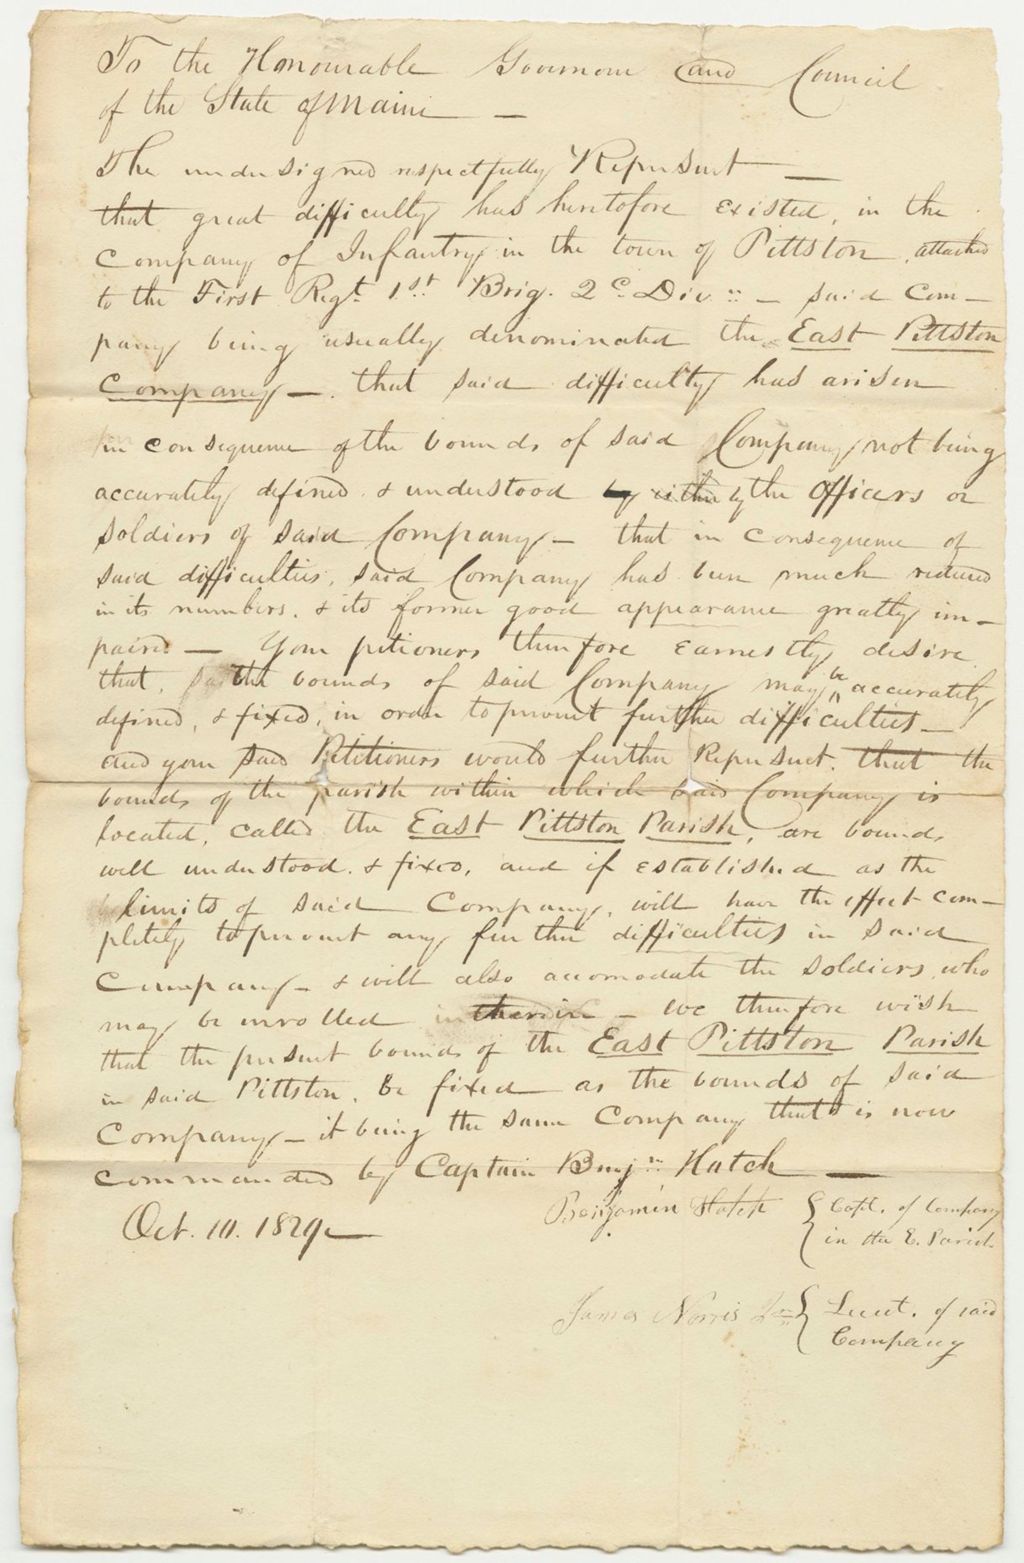 To the Honourable Governour and Council
of the State of Maine —
The undersigned respectfully Represent —
that great difficulty has heretofore existed, in the
Company of Infantry in the town of Pittston, attached
to the First Regt. 1st Brig. 2d Div :: — said Com-
pany being usually denominated the East Pittston
Company — that said difficulty has arisen
in consequence of the bounds of said Company not being
accurately defined & understood by either by the Officers or
Soldiers of said Company — that in consequence of
said difficulties, said Company has been much reduced
in its numbers, & its former good appearance greatly im-
paired — Your petioners therefore earnestly desire
that, the bounds of said Company may be accurately
defined, & fixed, in order to prevent further difficulties —
and your said Petitioners would further Represent, that the
bounds of the parish within which said Company is
located, called the East Pittston Parish, are bounds
well understood, & fixed, and if established as the
limits of said Company, will have the effect com-
pletely to prevent any further difficulties in said
Company — & will also accomodate the soldiers who
may be inrolled therein — we therefore wish
that the present bounds of the East Pittston Parish
in said Pittston, be fixed as the bounds of said
Company — it being the same Company that is now
commanded by Captain Benjn :: Hatch —
Oct. 10. 1829
Benjamin Hatch { Capt. of Company
in the E. Parish
James Norris Jr { Lieut. of said
Company